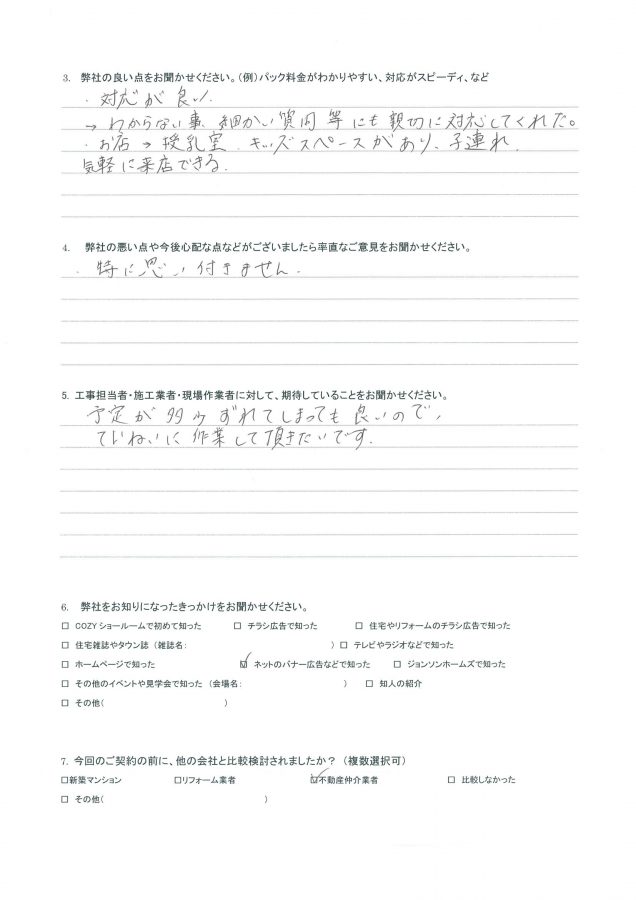 3. 弊社の良い点をお聞かせください。（例）パック料金がわかりやすい、対応がスピーディ、など
・対応が良い.
→ わからない事、細かい質問等にも親切に対応してくれた。
・お店→授乳室.キッズスペースがあり、子連れ.
気軽に来店できる.
4. 弊社の悪い点や今後心配な点などがございましたら率直なご意見をお聞かせください。
・特に思い付きません.
5. 工事担当者・施工業者・現場作業者に対して、期待していることをお聞かせください。
予定が多少ずれてしまっても良いので、
ていねいに作業して頂きたいです.
6. 弊社をお知りになったきっかけをお聞かせください。
□ COZYショールームで初めて知った □ チラシ広告で知った □ 住宅やリフォームのチラシ広告で知った
□ 住宅雑誌やタウン誌（雑誌名： ）□ テレビやラジオなどで知った
□ ホームページで知った ☑ ネットのバナー広告などで知った □ ジョンソンホームズで知った
□ その他のイベントや見学会で知った（会場名： ） □ 知人の紹介
□ その他（ ）
7. 今回のご契約の前に、他の会社と比較検討されましたか？（複数選択可）
□新築マンション □リフォーム業者 ☑不動産仲介業者 □ 比較しなかった
□ その他（ ）